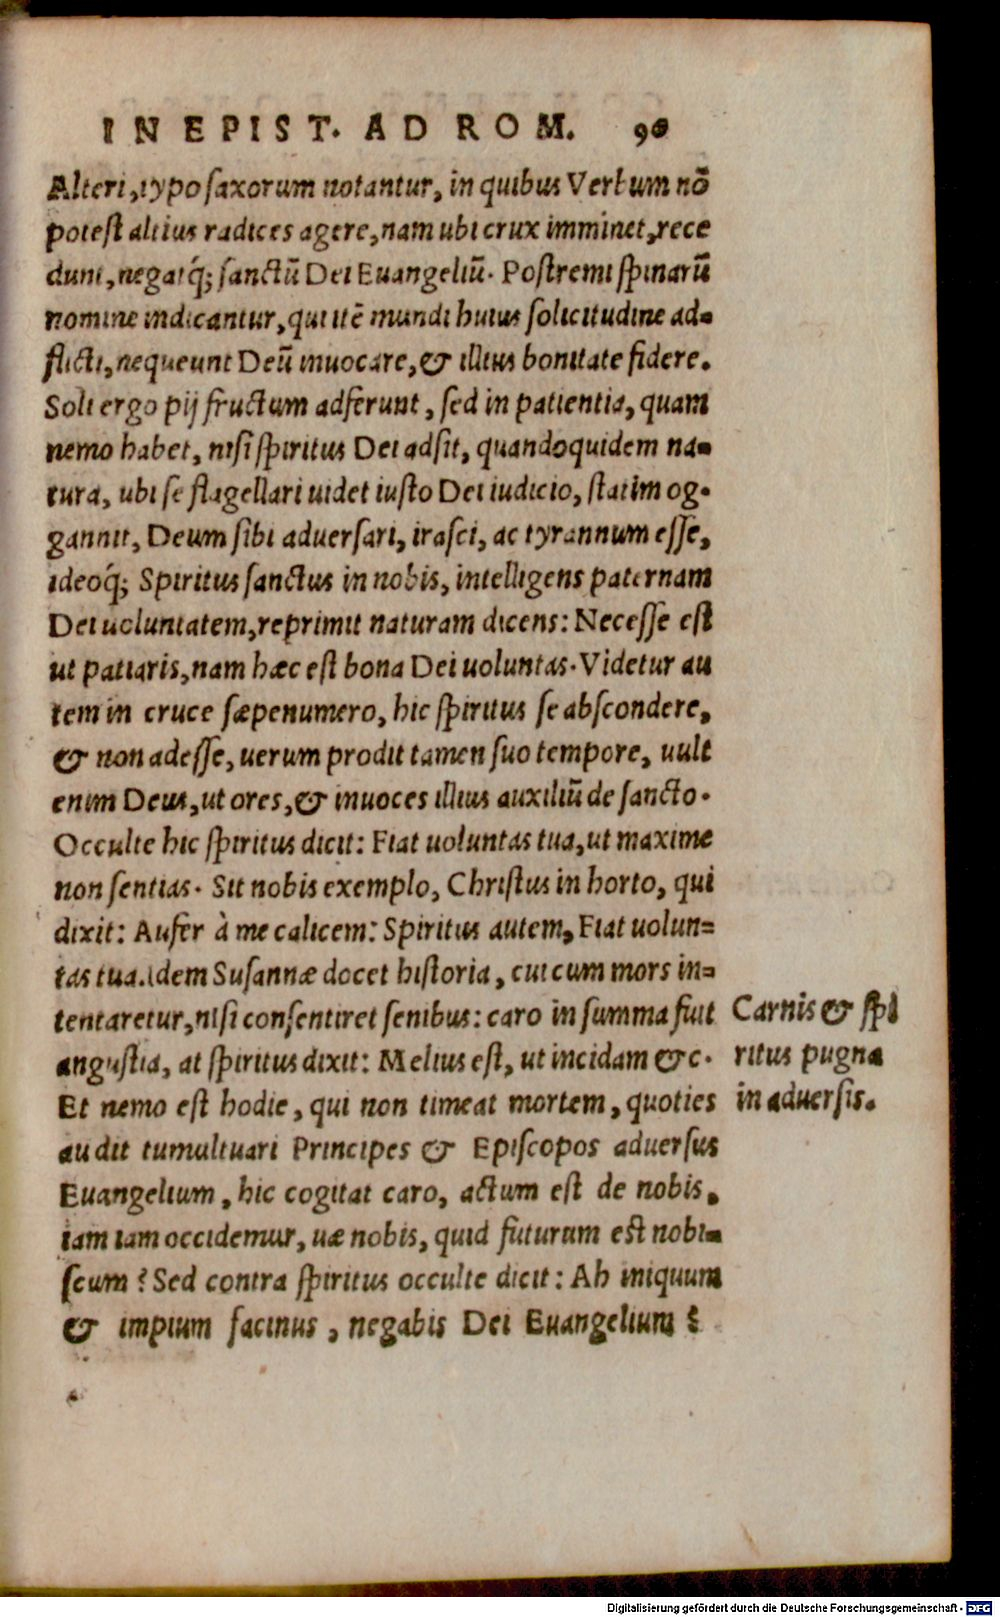 IN EPIST. AD ROM. 90
Alteri, typo saxorum notantur, in quibus Verbum nō
potest altius radices agere, nam ubi crux imminet, rece
dunt, negatq́; sanctū Dei Euangeliū. Postremi spinarū
nomine indicantur, qui itē mundi huius solicitudine ad-
flicti, nequeunt Deū inuocare, & illius bonitate fidere.
Soli ergo pij fructum adferunt, sed in patientia, quam
nemo habet, nisi spiritus Dei adsit, quandoquidem na-
tura, ubi se flagellari uidet iusto Dei iudicio, statim og-
gannit, Deum sibi aduersari, irasci, ac tyrannum esse,
ideoq́; Spiritus sanctus in nobis, intelligens paternam
Dei uoluntatem, reprimit naturam dicens: Necesse est
ut patiaris, nam hæc est bona Dei uoluntas. Videtur au
tem in cruce sæpenumero, hic spiritus se abscondere,
& non adesse, uerum prodit tamen suo tempore, uult
enim Deus, ut ores, & inuoces illius auxiliū de sancto.
Occulte hic spiritus dicit: Fiat uoluntas tua, ut maxime
non sentias. Sit nobis exemplo, Christus in horto, qui
dixit: Aufer à me calicem: Spiritus autem, Fiat uolun-
tas tua. Idem Susannæ docet historia, cui cum mors in-
tentaretur, nisi consentiret senibus: caro in summa fuit
angustia, at spiritus dixit: Melius est, ut incidam &c.
Et nemo est hodie, qui non timeat mortem, quoties
audit tumultuari Principes & Episcopos aduersus
Euangelium, hic cogitat caro, actum est de nobis,
iam iam occidemur, uæ nobis, quid futurum est nobi-
scum? Sed contra spiritus occulte dicit: Ah iniquum
& impium facinus, negabis Dei Euangelium?
Carnis & spi
ritus pugna
in aduersis.
Digitalisierung gefördert durch die Deutsche Forschungsgemeinschaft - DFG